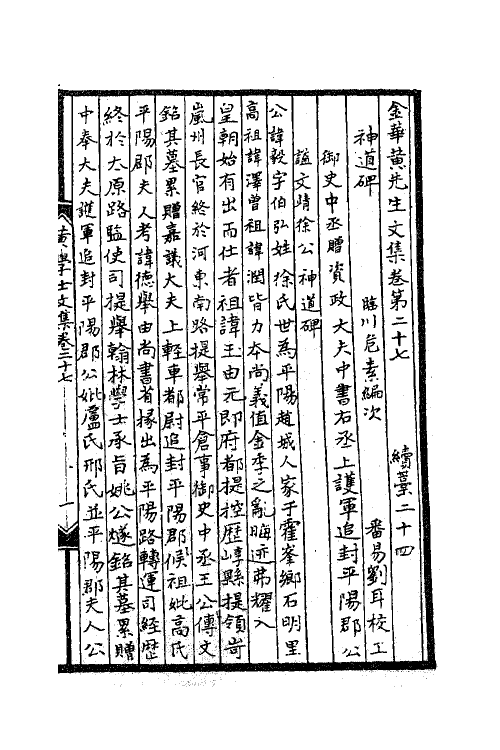 金華黃先生文集卷第二十七　續藁二十四
神道碑　臨川危素編次　番昜劉耳校正
御史中丞贈資政大夫中書右丞上護軍追封平陽郡公
謚文靖徐公神道碑
公諱毅字伯弘姓徐氏世為平陽趙城人家于霍峯鄉石明里
高祖諱澤曾祖諱潤皆力本尚義值金季之亂晦迹弗耀入
皇朝始有出而仕者祖諱玉由元帥府都提控歷崞縣提領岢
嵐州長官終於河東南路提舉常平倉事御史中丞王公傳文
銘其墓累贈嘉議大夫上輕車都尉追封平陽郡侯祖妣高氏
平陽郡夫人考諱德舉由尚書省掾出為平陽路轉運司經歷
終於太原路監使司提舉翰林學士承旨姚公燧銘其墓累贈
中奉大夫護軍追封平陽郡公妣盧氏邢氏並平陽郡夫人公
黃學士文集卷二十七　一